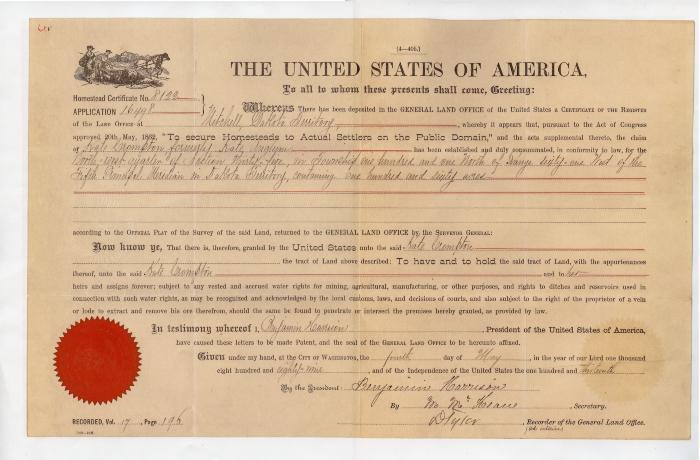 (4—405.)
THE UNITED STATES OF AMERICA,
To all to whom these presents shall come, Greeting:
Homestead Certificate No. 8122
APPLICATION 16498
Whereas There has been deposited in the GENERAL LAND OFFICE of the United States a CERTIFICATE OF THE REGISTER
OF THE LAND OFFICE at Mitchell, Dakota Territory, whereby it appears that, pursuant to the Act of Congress
approved 20th May, 1862, "To secure Homesteads to Actual Settlers on the Public Domain," and the acts supplemental thereto, the claim
of Kate Crompton, formerly Kate has been established and duly consummated, in conformity to law, for the
North-west quarter of Section thirty-five, in Township one hundred and one North of Range sixty-one West of the
Fifth Principal Meridian in Dakota Territory, containing one hundred and sixty acres
according to the OFFICIAL PLAT of the Survey of the said Land, returned to the GENERAL LAND OFFICE by the SURVEYOR GENERAL:
Now know ye, That there is, therefore, granted by the United States unto the said Kate Crompton
the tract of Land above described: To have and to hold the said tract of Land, with the appurtenances
thereof, unto the said Kate Crompton and to her
heirs and assigns forever; subject to any vested and accrued water rights for mining, agricultural, manufacturing, or other purposes, and rights to ditches and reservoirs used in
connection with such water rights, as may be recognized and acknowledged by the local customs, laws, and decisions of courts, and also subject to the right of the proprietor of a vein
or lode to extract and remove his ore therefrom, should the same be found to penetrate or intersect the premises hereby granted, as provided by law.
In testimony whereof I, Benjamin Harrison, President of the United States of America,
have caused these letters to be made Patent, and the seal of the GENERAL LAND OFFICE to be hereunto affixed.
Given under my hand, at the CITY OF WASHINGTON, the fourth day of May, in the year of our Lord one thousand
eight hundred and eighty-nine, and of the Independence of the United States the one hundred and thirteenth
By the President: Benjamin Harrison
By M. McKean, Secretary.
RECORDED, Vol. 17, Page 196
Recorder of the General Land Office.
(Ad interim)